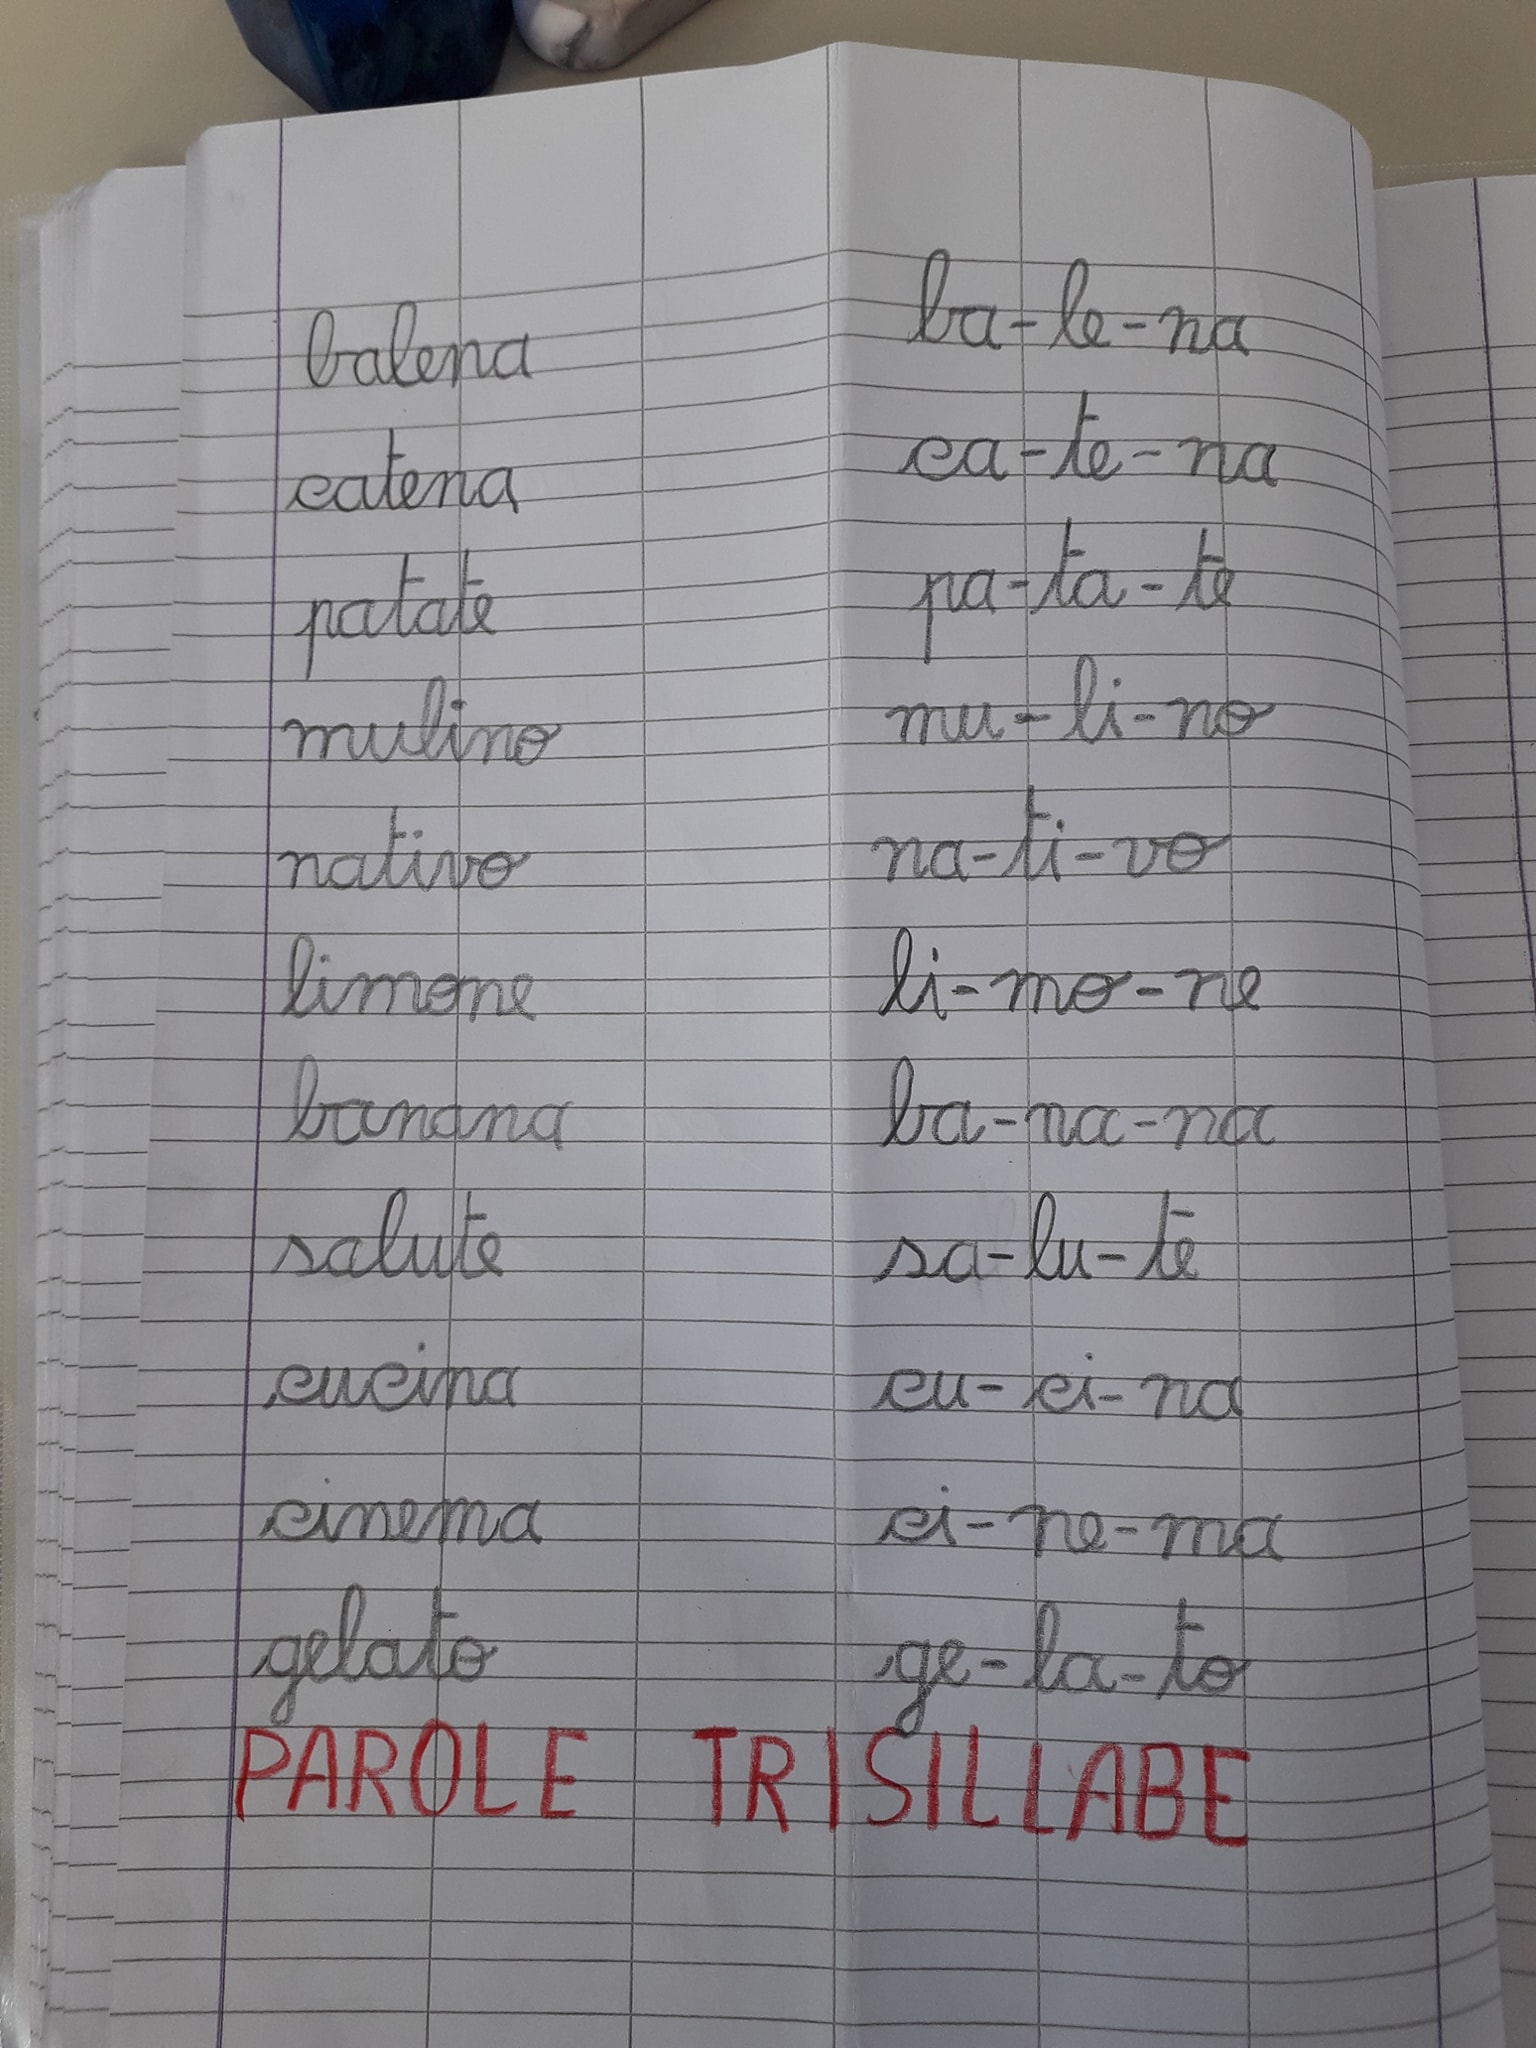 balena ba-le-na
catena ca-te-na
patate pa-ta-te
mulino mu-li-no
nativo na-ti-vo
limone li-mo-ne
banana ba-na-na
salute sa-lu-te
cucina cu-ci-na
cinema ci-ne-ma
gelato ge-la-to
PAROLE TRISILLABE